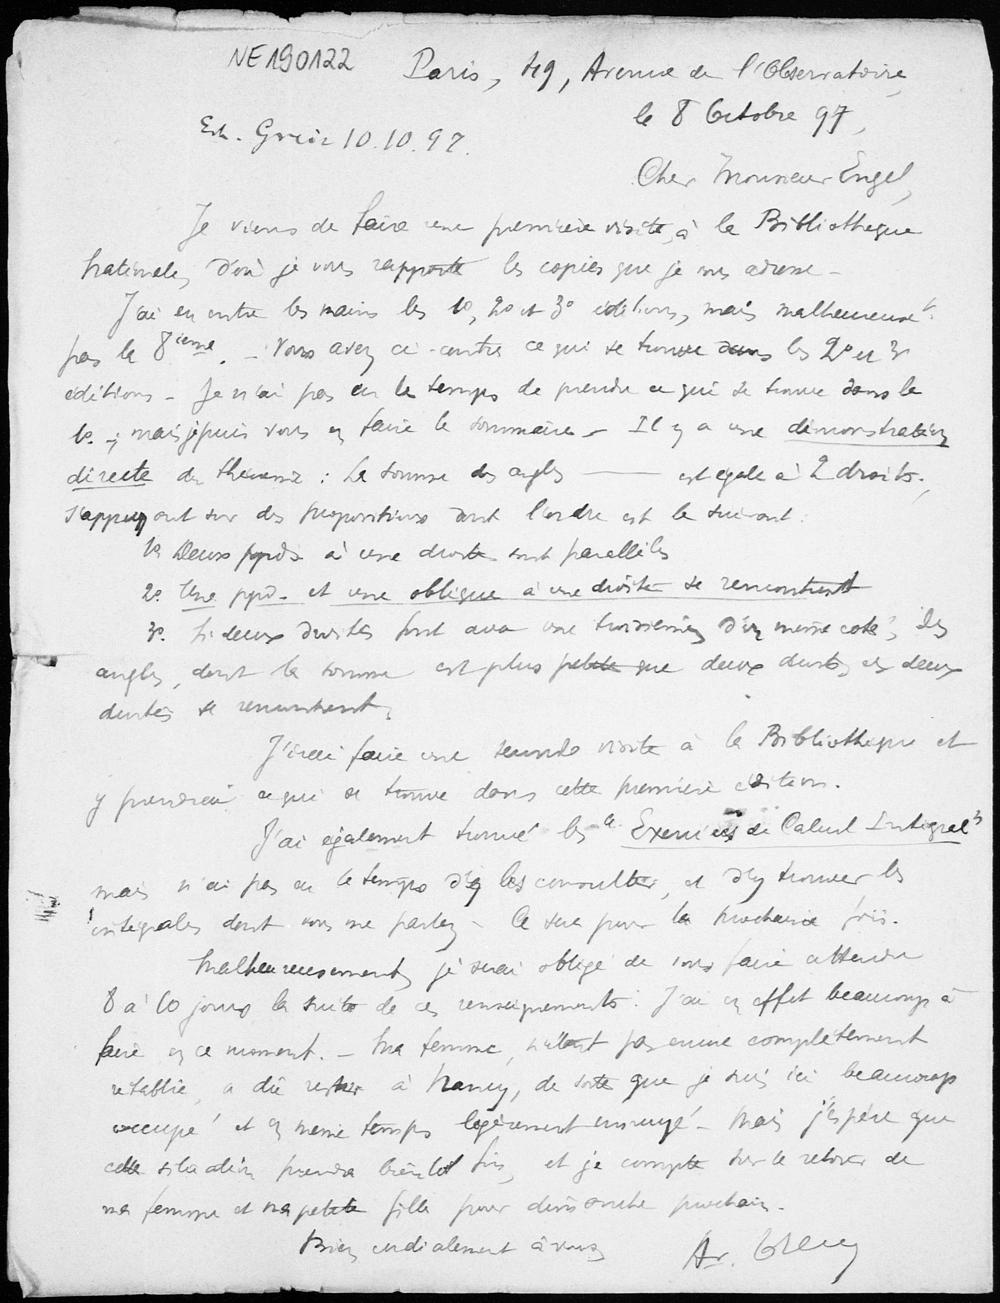 NE190122
Paris, 49, Avenue de l'Observatoire,
le 8 Octobre 97,
Erh. Greiz 10.10.97.
Cher Monsieur Engel,
Je viens de faire une première visite, à la Bibliothèque
Nationale, d'où je vous rapporte les copies que je vous adresse –
J'ai eu entre les mains les 1o, 2o et 3o éditions, mais malheureuset
pas la 8ième. – Vous avez ci-contre ce qui se trouve dans les 2o et 3o
éditions – Je n'ai pas eu le temps de prendre ce qui se trouve dans la
1o. ; mais je puis vous en faire le sommaire – Il y a une démonstration
directe du théorème : La somme des angles ——— est égale à 2 droits.,
s'appuyant sur des propositions dont l'ordre est le suivant :
1o. Deux ppdres à une droite sont parallèles
2o. Une ppd. et une oblique à une droite se rencontrent
3o. Si deux droites font avec une troisième, d'un même côté, des
angles, dont la somme est plus petite que deux droits, ces deux
droites se rencontrent,
J'irai faire une seconde visite à la Bibliothèque et
y prendrai ce qui se trouve dans cette première édition.
J'ai également trouvé les "Exercices de Calcul Intégral"
mais n'ai pas eu le temps de les consulter, et d'y trouver les
intégrales dont vous me parlez – Ce sera pour la prochaine fois.
Malheureusement, je serai obligé de vous faire attendre
8 à 10 jours la suite de ces renseignements. J'ai en effet beaucoup à
faire en ce moment. – Ma femme, n'étant pas encore complètement
rétablie, a dû rester à Nancy, de sorte que je suis ici beaucoup
occupé et en même temps légèrement ennuyé – Mais j'espère que
cette situation prendra bientôt fin, et je compte sur le retour de
ma femme et ma petite fille pour dimanche prochain.
Bien cordialement à vous,
Ar.